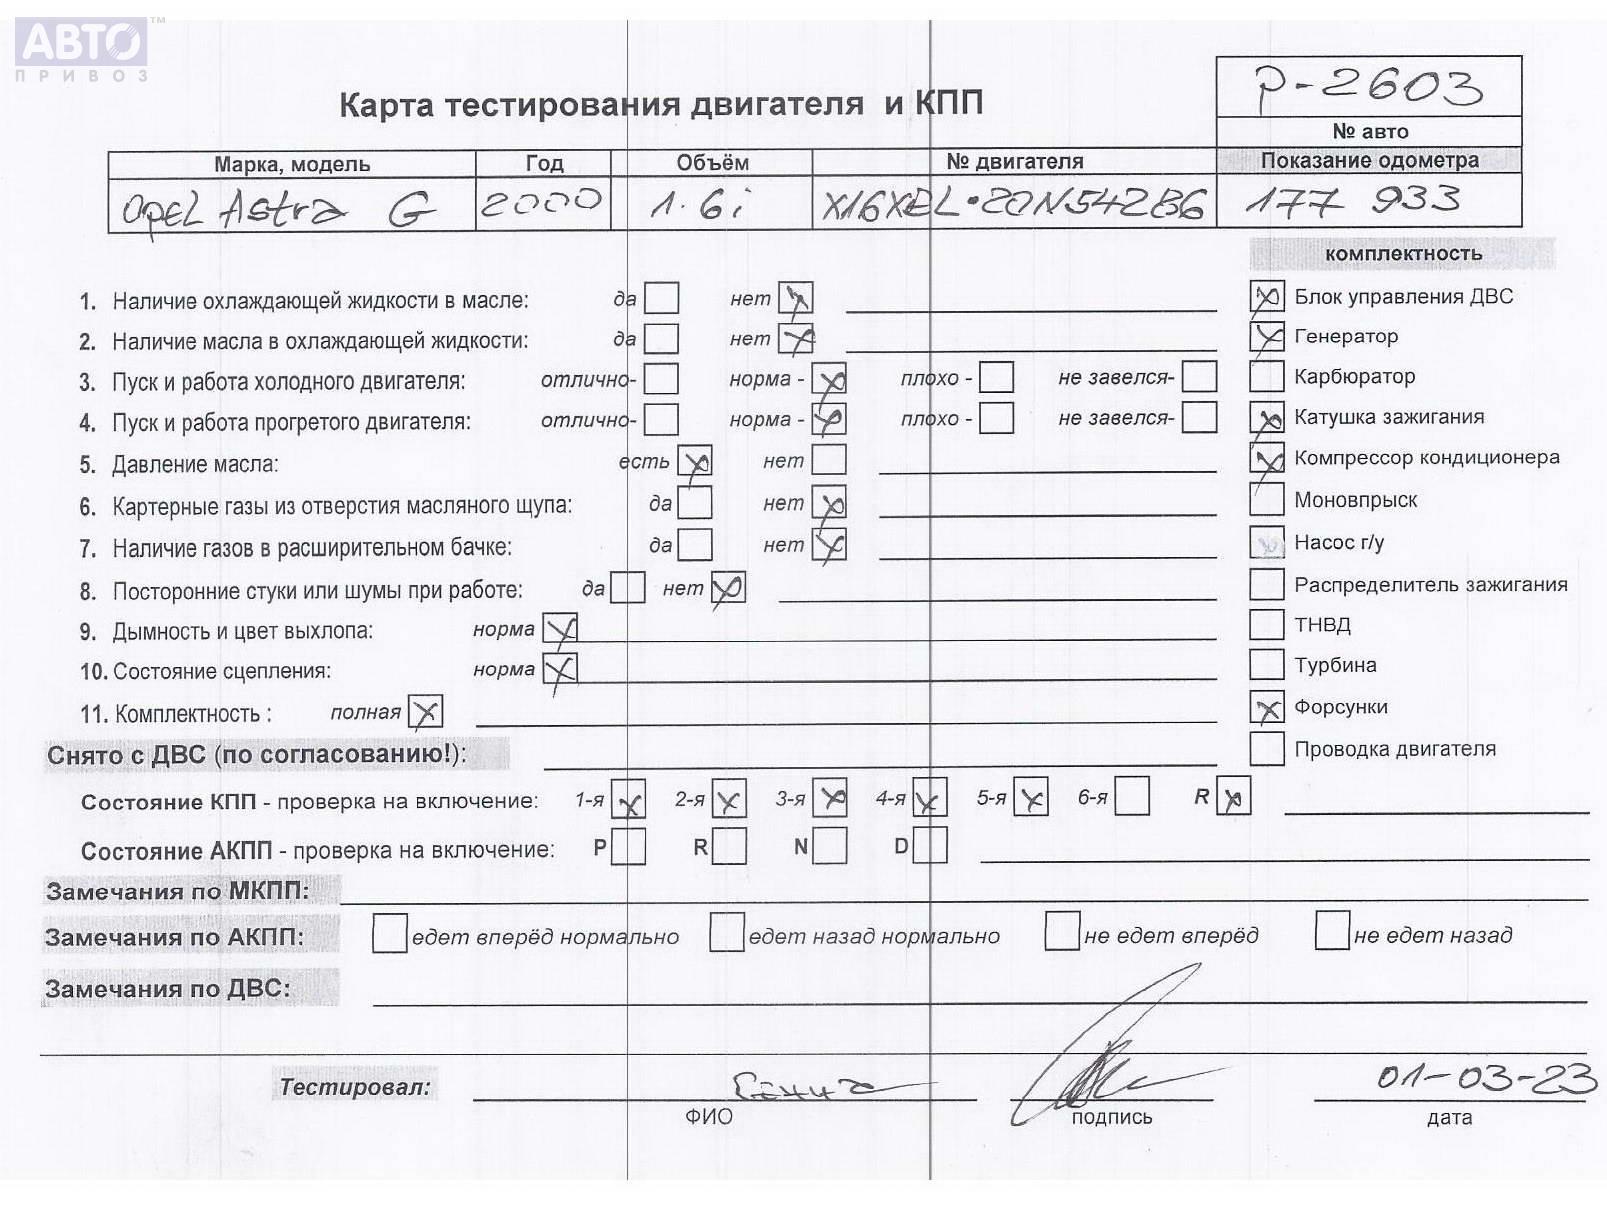 АВТО™
ПРИВОЗ
P-2603
Карта тестирования двигателя и КПП
№ авто
Марка, модель Год Объём № двигателя Показание одометра
Opel Astra G 2000 1.6i X16XEL•20N54286 177 933
комплектность
1. Наличие охлаждающей жидкости в масле: да нет Блок управления ДВС
2. Наличие масла в охлаждающей жидкости: да нет Генератор
3. Пуск и работа холодного двигателя: отлично- норма - плохо - не завелся- Карбюратор
4. Пуск и работа прогретого двигателя: отлично- норма - плохо - не завелся- Катушка зажигания
5. Давление масла: есть нет Компрессор кондиционера
6. Картерные газы из отверстия масляного щупа: да нет Моновпрыск
7. Наличие газов в расширительном бачке: да нет Насос г/у
8. Посторонние стуки или шумы при работе: да нет Распределитель зажигания
9. Дымность и цвет выхлопа: норма ТНВД
10. Состояние сцепления: норма Турбина
11. Комплектность : полная Форсунки
Снято с ДВС (по согласованию!): Проводка двигателя
Состояние КПП - проверка на включение: 1-я 2-я 3-я 4-я 5-я 6-я R
Состояние АКПП - проверка на включение: P R N D
Замечания по МКПП:
Замечания по АКПП: едет вперёд нормально едет назад нормально не едет вперёд не едет назад
Замечания по ДВС:
Тестировал: 01-03-23
ФИО подпись дата